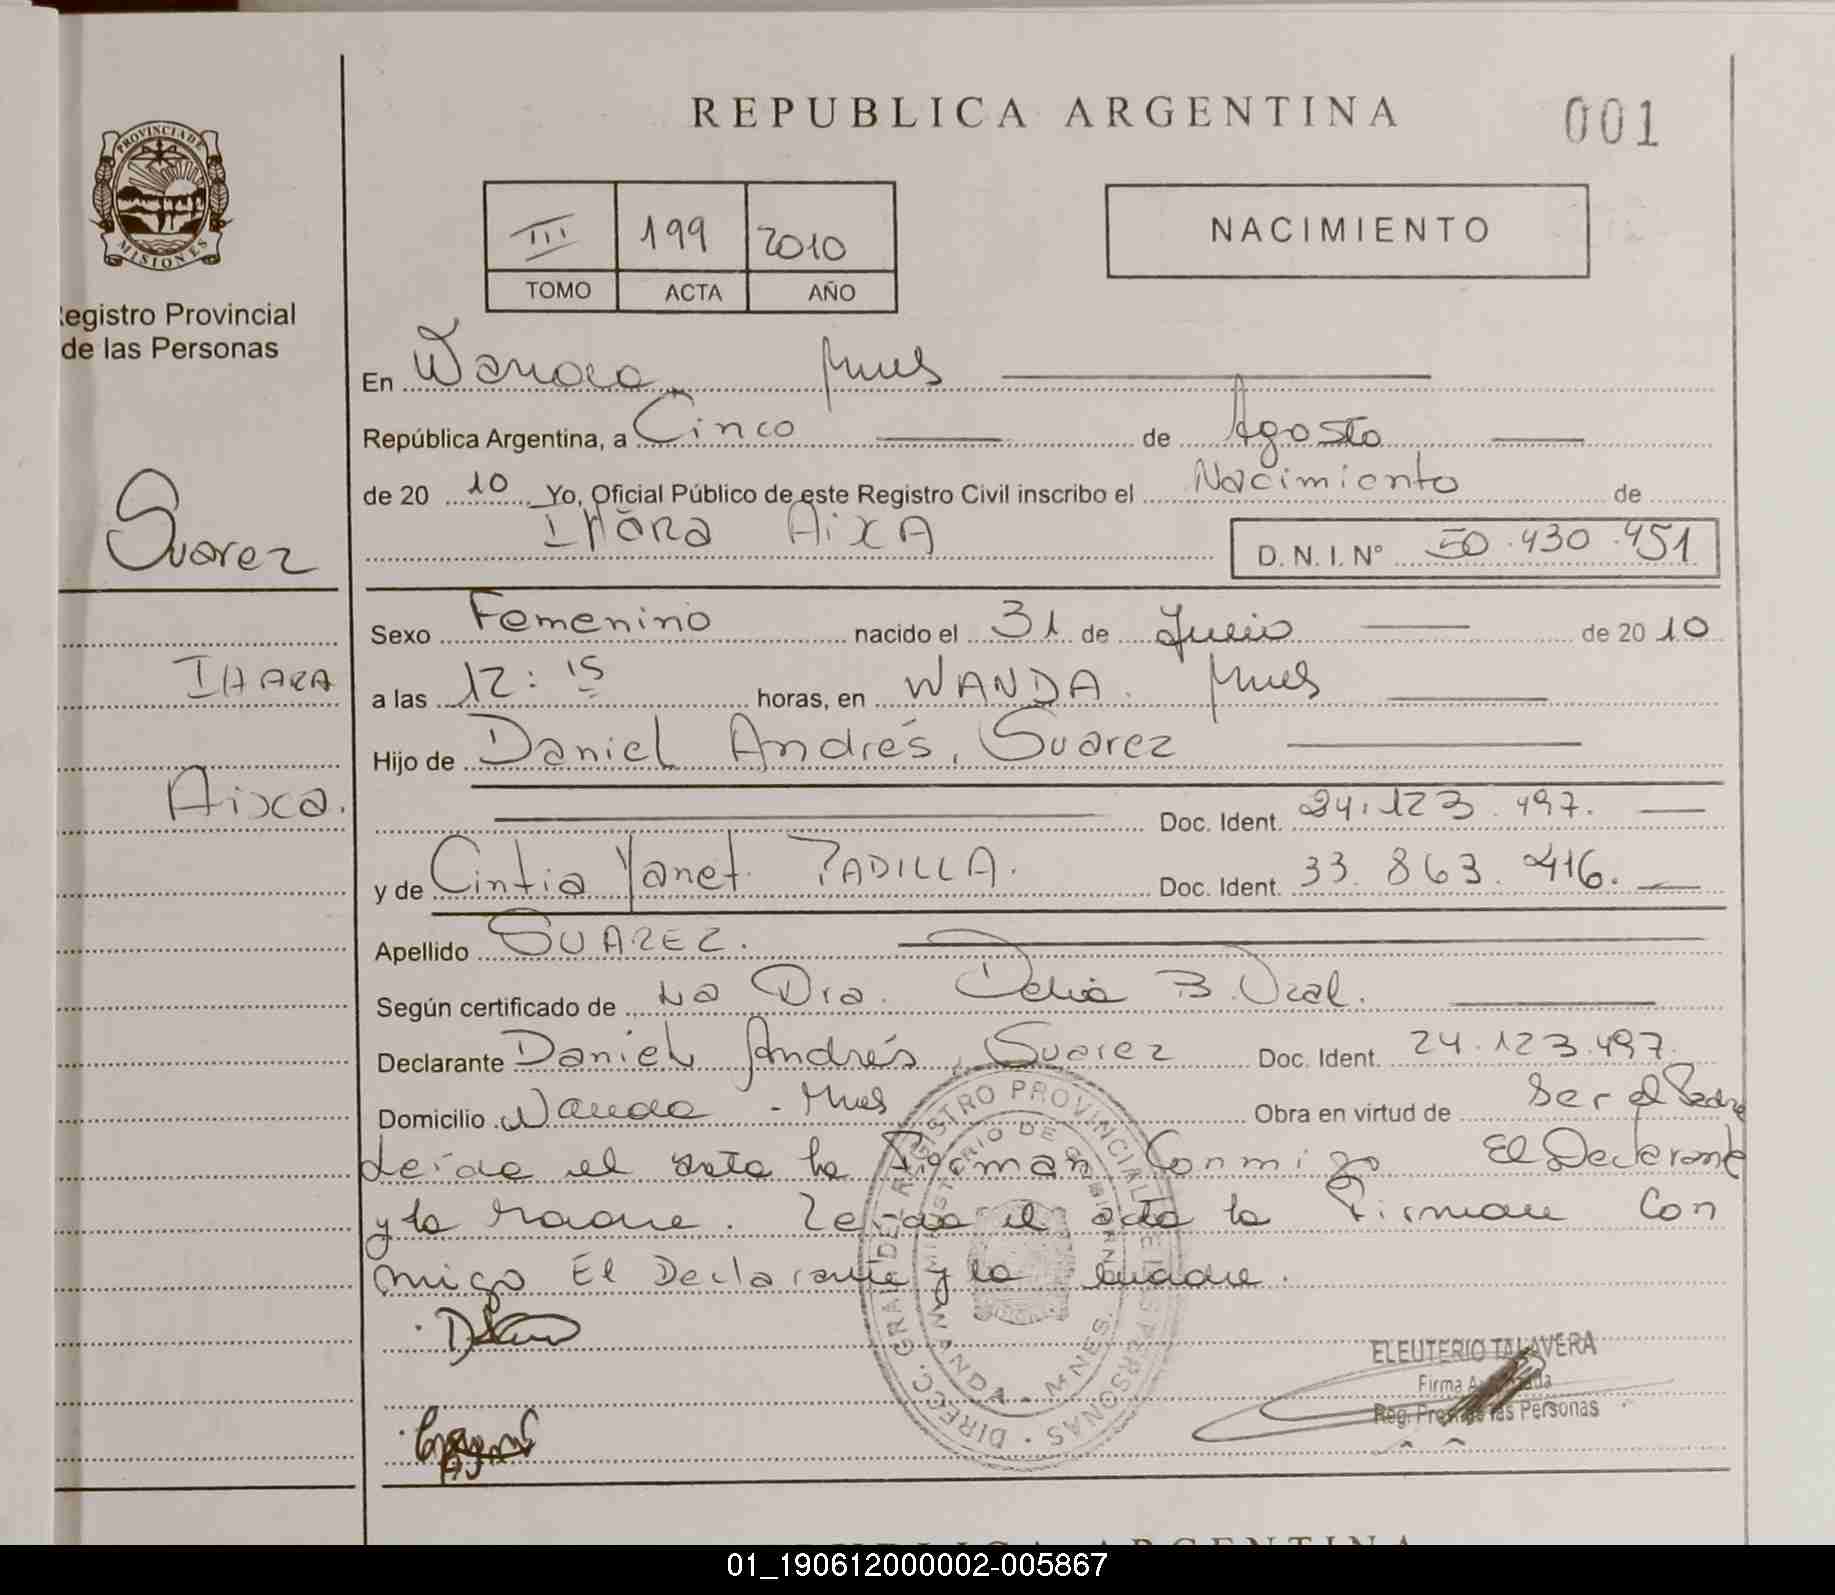 REPUBLICA ARGENTINA
001
PROVINCIA DE
MISIONES
Registro Provincial
de las Personas
III 199 2010
TOMO ACTA AÑO
NACIMIENTO
En Wanda Mnes
República Argentina, a Cinco de Agosto
de 20 10 Yo, Oficial Público de este Registro Civil inscribo el Nacimiento de
IHARA AiXA D. N. I. N° 50.430.451
Suarez
IHARA
Aixa.
Sexo Femenino nacido el 31 de Julio de 20 10
a las 12:15 horas, en WANDA. Mnes
Hijo de Daniel Andrés, Suarez
Doc. Ident. 24.123.497.
y de Cintia Yanet. PADILLA. Doc. Ident. 33.863.416.
Apellido SUAREZ.
Según certificado de La Dra. Delia B.
Declarante Daniel Andrés, Suarez Doc. Ident. 24.123.497.
Domicilio Wanda - Mnes Obra en virtud de Ser el Padre
Leída el acta la Firman Conmigo El Declarante
y la madre. Leida el acta la Firman Con
migo El Declarante y la madre.
DIRECC. GRAL. DEL REGISTRO PROVINCIAL DE LAS PERSONAS
MINISTERIO DE GOBIERNO
WANDA - MNES.
ELEUTERIO TALAVERA
Firma Autorizada
Reg. Prov. de las Personas
REPUBLICA ARGENTINA
01_190612000002-005867